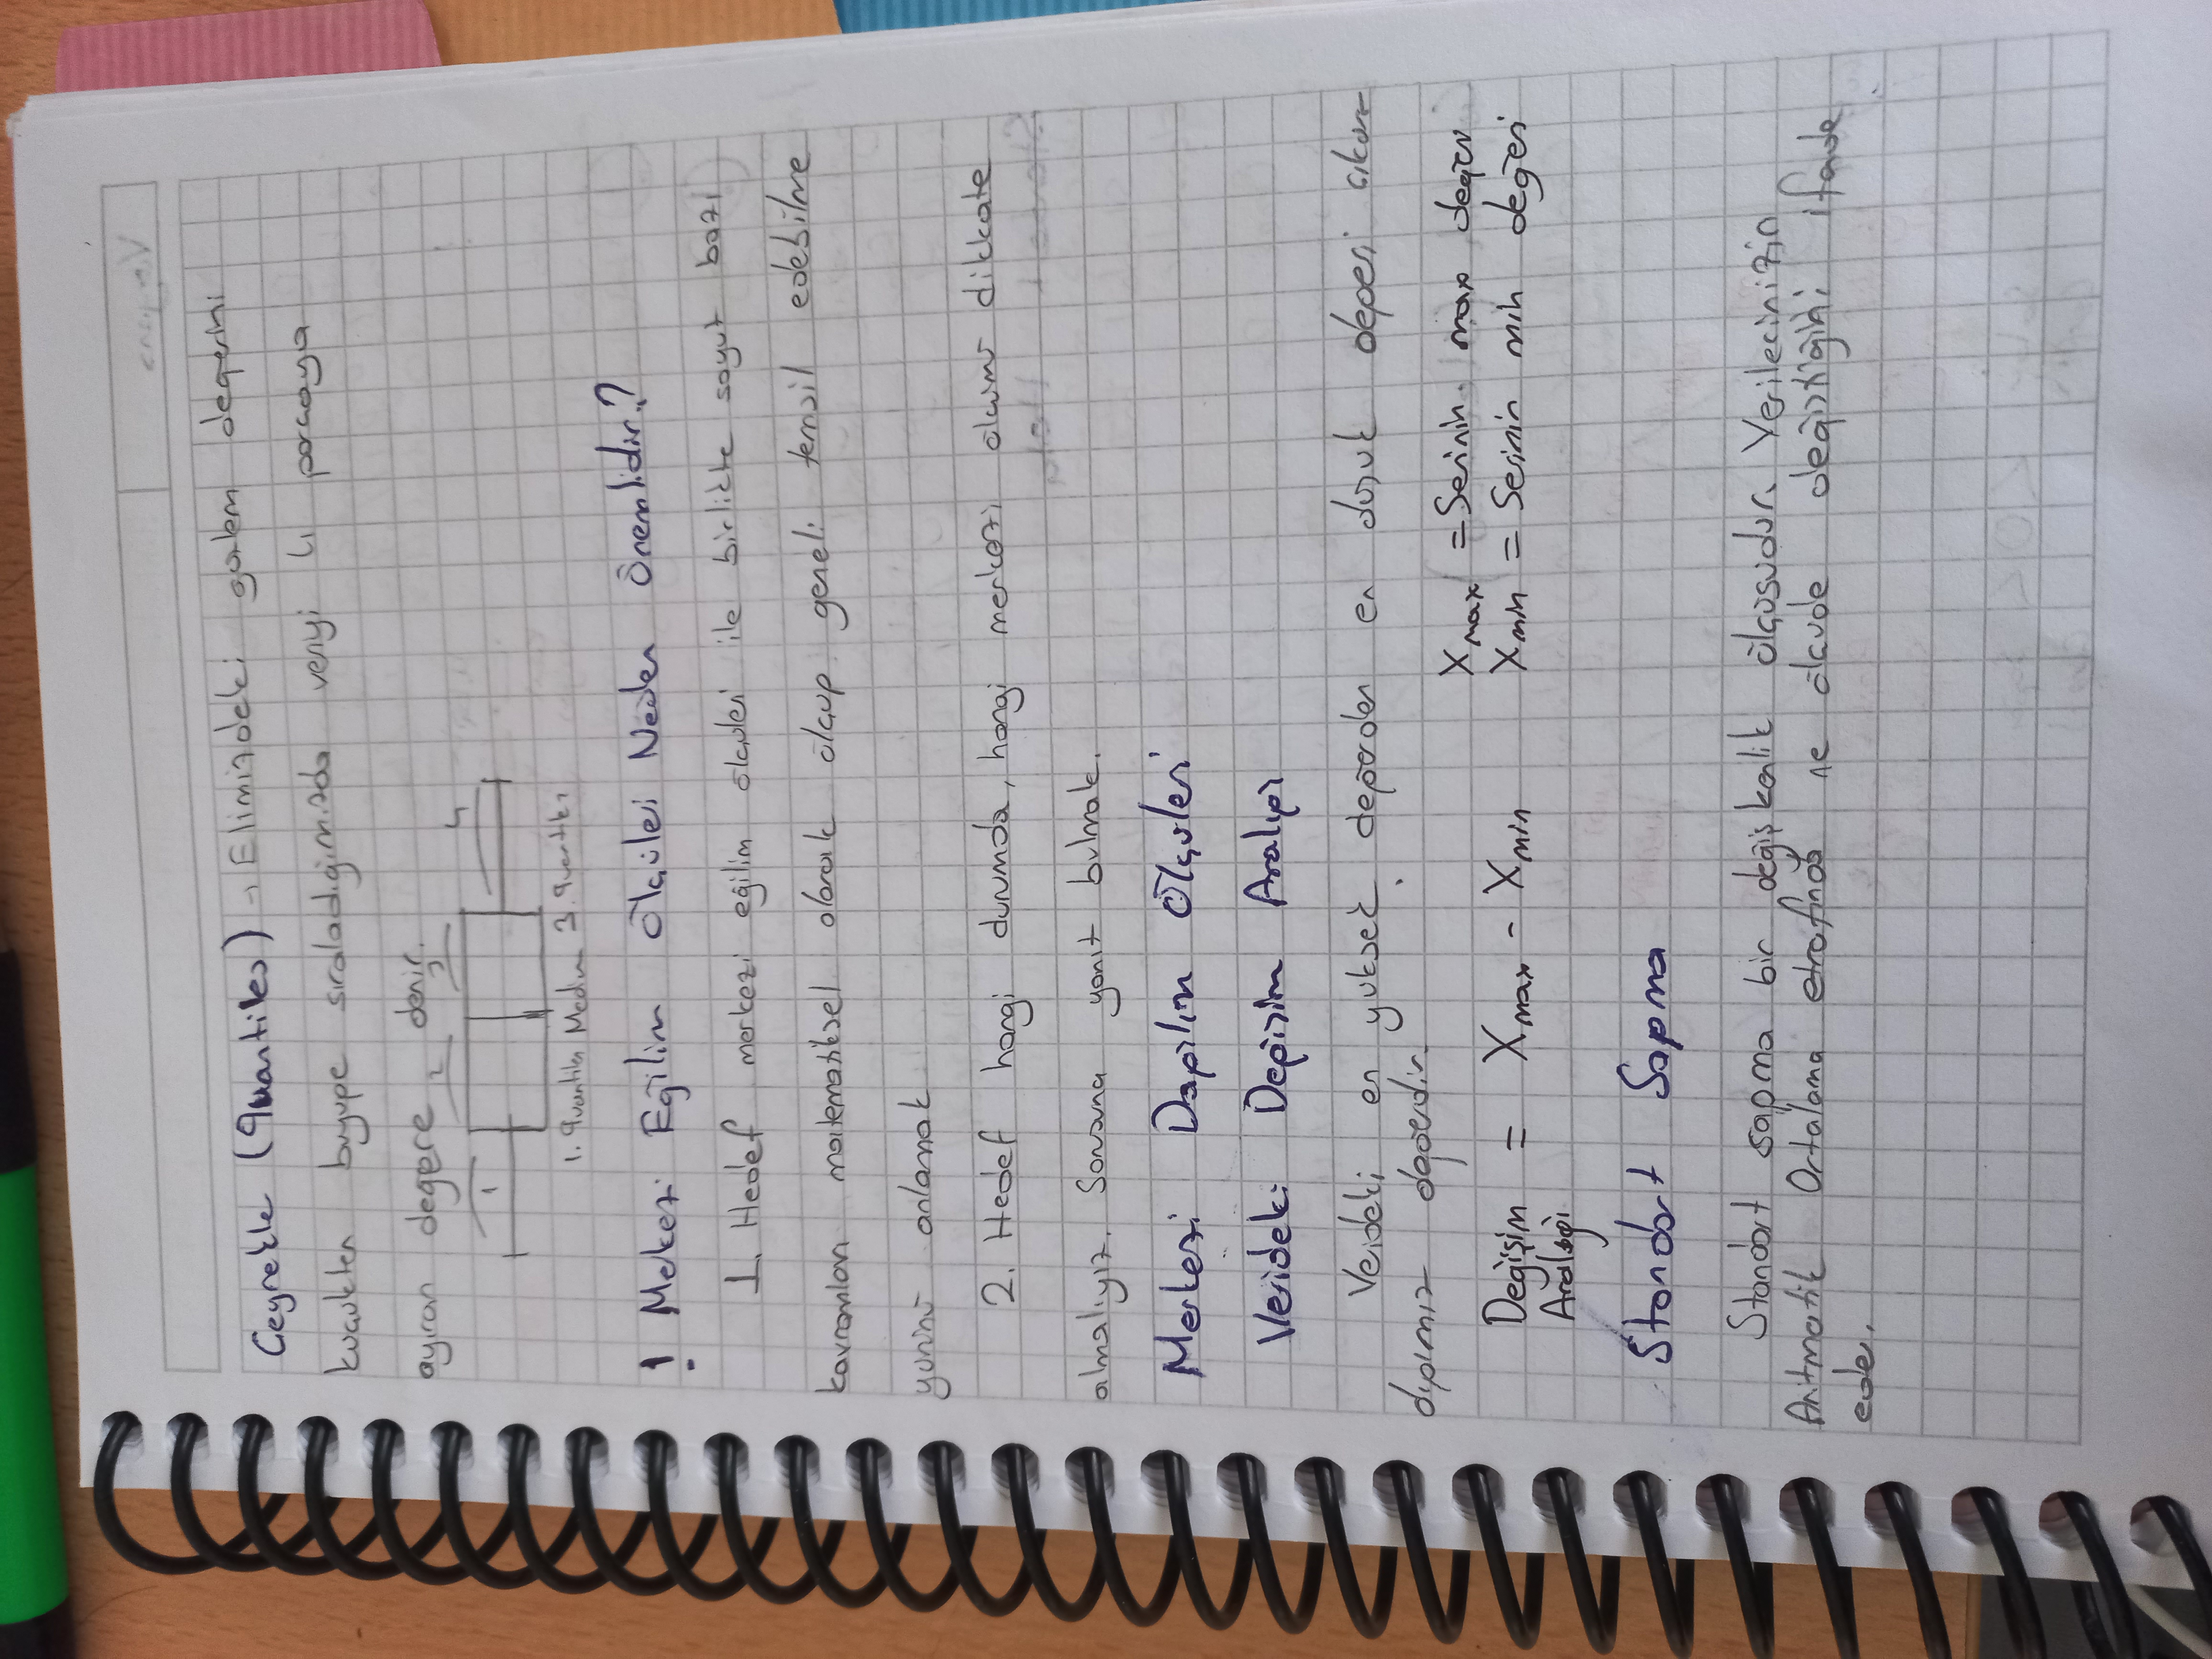 Çeyrekle (Quantiles) → Elimizdeki gözlem değerini
küçükten büyüğe sıraladığımızda veriyi 4 parçaya
ayıran değere denir.
1 2 3 4
1. Quantiles Median 3. Quantiles
! Merkezi Eğilim Ölçüleri Neden Önemlidir?
1. Hedef merkezi eğilim ölçüleri ile birlikte soyut bazı
kavramları matematiksel olarak ölçüp geneli temsil edebilme
yönünü anlamak
2. Hedef hangi durumda, hangi merkezi ölçümü dikkate
almalıyız. Sorusuna yanıt bulmak.
Merkezi Dağılım Ölçüleri
Verideki Değişim Aralığı
Verideki en yüksek değerden en düşük değeri çıkar-
dığımız değerdir.
Xmax = Serinin max değeri
Değişim Aralığı = Xmax - Xmin
Xmin = Serinin min değeri
Standart Sapma
Standart sapma bir değişkenlik ölçüsüdür. Verilerinizin
Aritmatik Ortalama etrafında ne ölçüde değiştiğini ifade
eder.